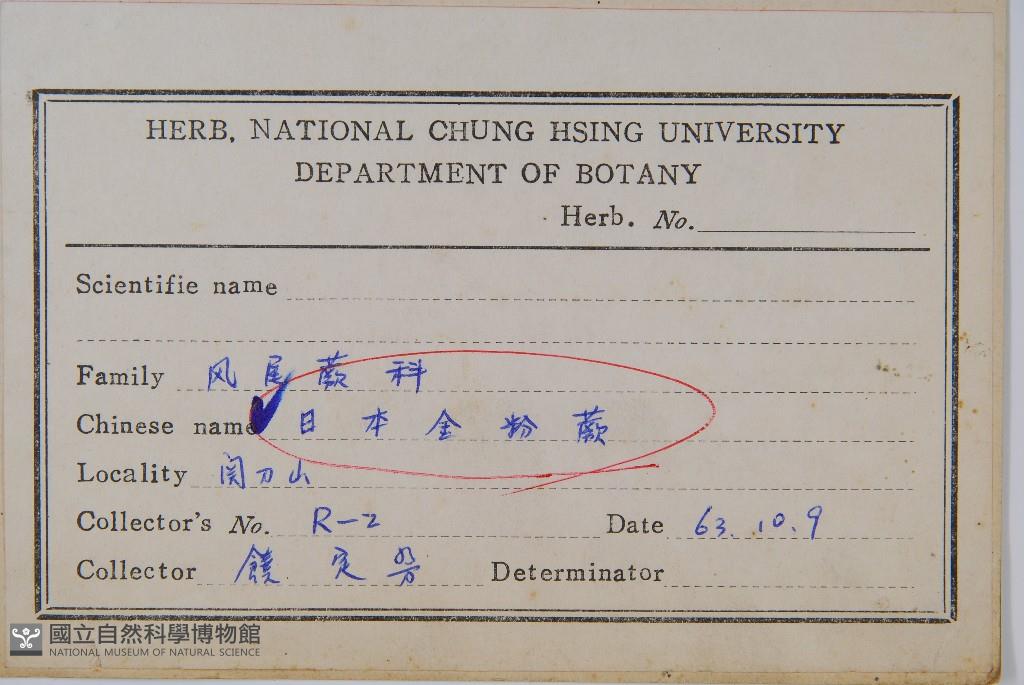 HERB, NATIONAL CHUNG HSING UNIVERSITY
DEPARTMENT OF BOTANY
Herb. No.
Scientifie name
Family 风尾蕨科
Chinese name 日本金粉蕨
Locality 関刀山
Collector's No. R-2 Date 63.10.9
Collector 饒定 Determinator
國立自然科學博物館
NATIONAL MUSEUM OF NATURAL SCIENCE